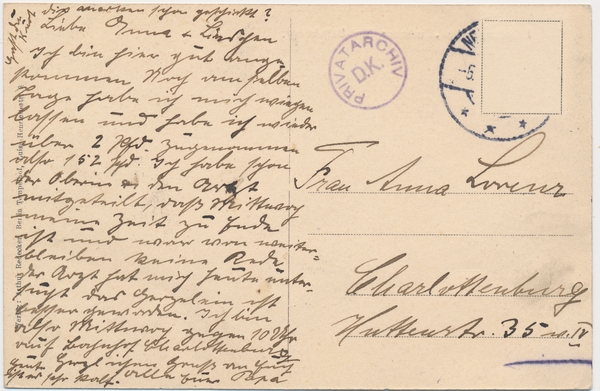 die anderen schon geschickt?
Liebe Anna + Lieschen
Ich bin hier gut ange-
kommen Noch am selben
Tage habe ich mich wiegen
lassen und habe ich wieder
über 2 Pfd. zugenommen
also 152 Pfd. Ich habe schon
der Oberin u. den Arzt
mitgeteilt, daß Mittwoch
meine Zeit zu Ende
ist und war von weiter-
bleiben keine Rede
der Arzt hat mich heute unter-
sucht das Herzelein ist
besser geworden. Ich bin
also Mittwoch gegen 10 Uhr
auf Bahnhof Charlottenburg
Gruß an
alle Euer Papa
ist es sehr kalt.
PRIVATARCHIV
D.K.
Frau Anna Lorenz
Charlottenburg
Huttenstr. 35 IV